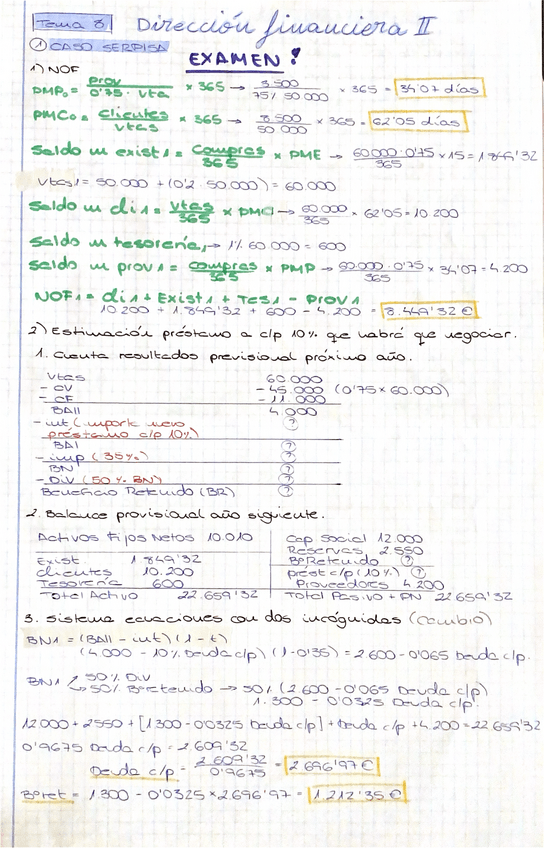 Tema 8 Dirección financiera II
① CASO SERPISA
EXAMEN!
1) NOF
PMP₀ = prov / 0'75 · vta × 365 → 3.500 / 75% 50.000 × 365 = 34'07 días
PMC₀ = clientes / vtas × 365 → 8.500 / 50.000 × 365 = 62'05 días
Saldo m exist1 = compras / 365 × PME → 60.000 · 0'75 / 365 × 15 = 1.849'32
Vtas1 = 50.000 + (0'2 · 50.000) = 60.000
Saldo m cli1 = vtas / 365 × PMCl → 60.000 / 365 × 62'05 = 10.200
Saldo m tesorería1 → 1% 60.000 = 600
Saldo m prov1 = compras / 365 × PMP → 60.000 · 0'75 / 365 × 34'07 = 4.200
NOF1 = cli1 + Exist1 + Tes1 - Prov1
10.200 + 1.849'32 + 600 - 4.200 = 8.449'32 €
2) Estimación préstamo a c/p 10% que habrá que negociar.
1. Cuenta resultados previsional próximo año.
Vtas 60.000
- CV - 45.000 (0'75 × 60.000)
- CF - 11.000
BAII 4.000
- int (importe nuevo
préstamo c/p 10%) ?
BAI ?
- imp (35%) ?
BN ?
- DIV (50% BN) ?
Beneficio Retenido (BR) ?
2. Balance provisional año siguiente.
Activos Fijos Netos 10.010 Cap Social 12.000
Reservas 2.550
Exist 1.849'32 Bº Retenido ?
clientes 10.200 prést c/p (10%) ?
Tesorería 600 Proveedores 4.200
Total Activo 22.659'32 Total Pasivo + PN 22.659'32
3. Sistema ecuaciones con dos incógnitas (cambio)
BN1 = (BAII - int) (1 - t)
(4.000 - 10% Deuda c/p) (1 - 0'35) = 2.600 - 0'065 Deuda c/p.
BN1 50% DIV
50% Bº retenido → 50% (2.600 - 0'065 Deuda c/p)
1.300 - 0'0325 Deuda c/p.
12.000 + 2550 + [1300 - 0'0325 Deuda c/p] + Deuda c/p + 4.200 = 22.659'32
0'9675 Deuda c/p = 2.609'32
Deuda c/p = 2.609'32 / 0'9675 = 2.696'97 €
Bº ret = 1.300 - 0'0325 × 2.696'97 = 1.212'35 €